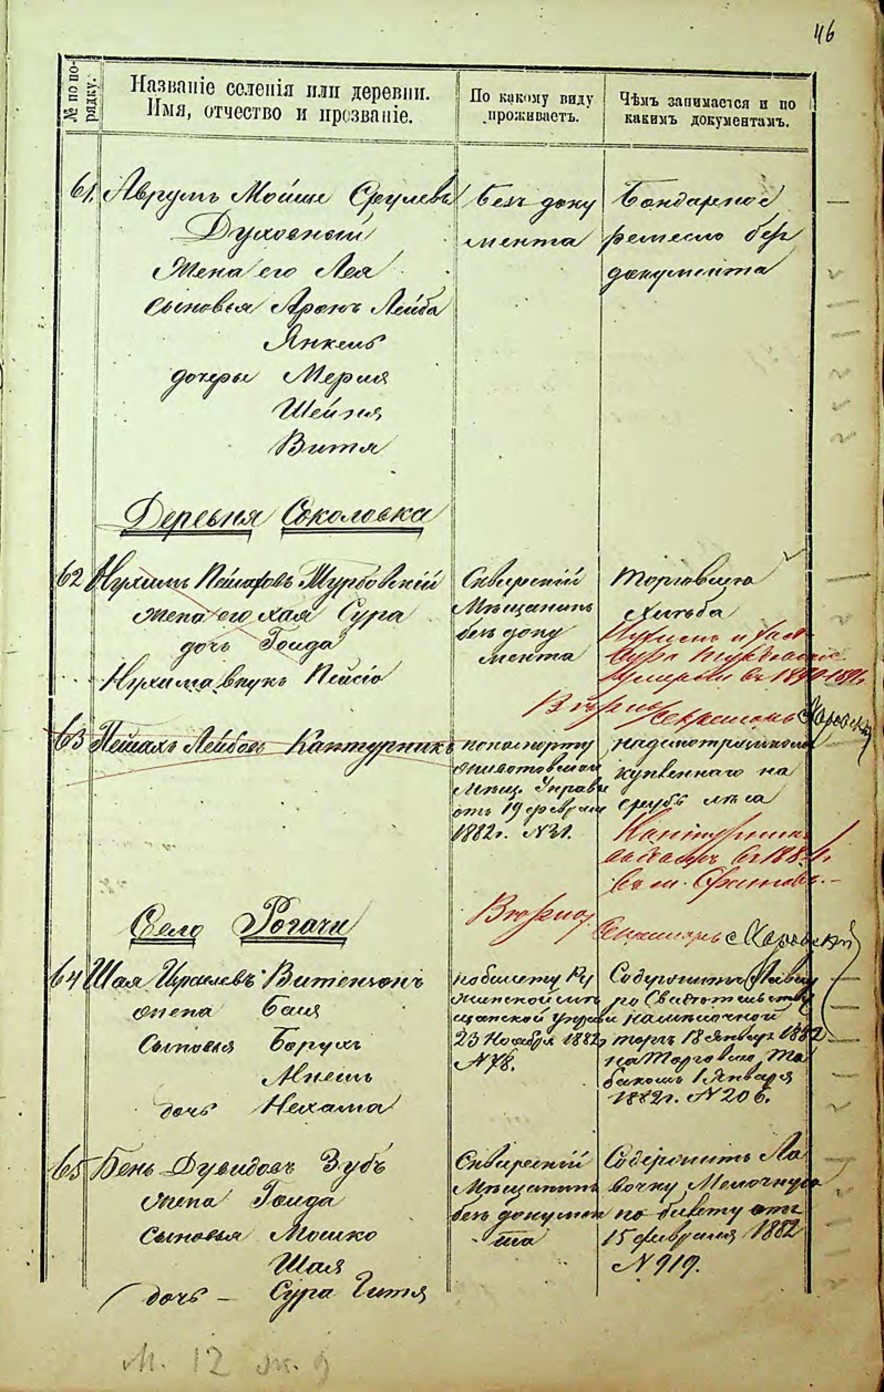 46
№ по по-
рядку.
Названіе селенія или деревни.
Имя, отчество и прозваніе.
По какому виду
проживаетъ.
Чѣмъ занимается и по
какимъ документамъ.
61. Аврумъ Мойше Срулевъ
Духовный
Жена его Лея
Сыновья Аронъ Лейба
Янкель
дочери Мерия
Шейня
Витя
Безъ доку
мента
Бондарное
ремесло без
документа
Деревня Соколовка
62 Нухимъ Пейсаховъ Турбовскій
жена его Хая Сура
дочь Гоида
Нухима внукъ Пейсіо
Сквирскій
Мѣщанинъ
безъ доку
мента
Торговлею
хлѣба
Нухимъ и Хая
Сура Турбовские
умерли въ 1890-1891
Вѣрно: Секретарь
63 Пейсахъ Лейбовъ Кантурникъ
по паспорту
Мѣщ. Управы
отъ 19 февраля
1882 г. № 31.
надсмотрщикомъ
купленнаго на
срубъ лѣса
Кантурникъ
въ 1884 г.
въ м.
Вѣрно:
Секретарь
Село Рогачи
64 Шая Израилевъ Витензонъ
жена Бася
Сыновья Борухъ
дочь Нехама
по билету Ру
жинской мѣ
щанской управы
23 Ноября 1882
№ 78.
Содержитъ Лавку
по Свидѣтельству
на мелочной
торгъ 18 Январ 1882
на Торговлю Та
бакомъ 1 Января
1882 г. № 206.
65 Бень Дувидовъ Зубъ
жена Гоида
Сыновья Мошко
Шая
дочь – Сура Гитя
Сквирский
Мѣщанинъ
безъ докумен
та
Содержитъ Ла
вочку Мелочную
по билету отъ
15 февраля 1882
№ 919.